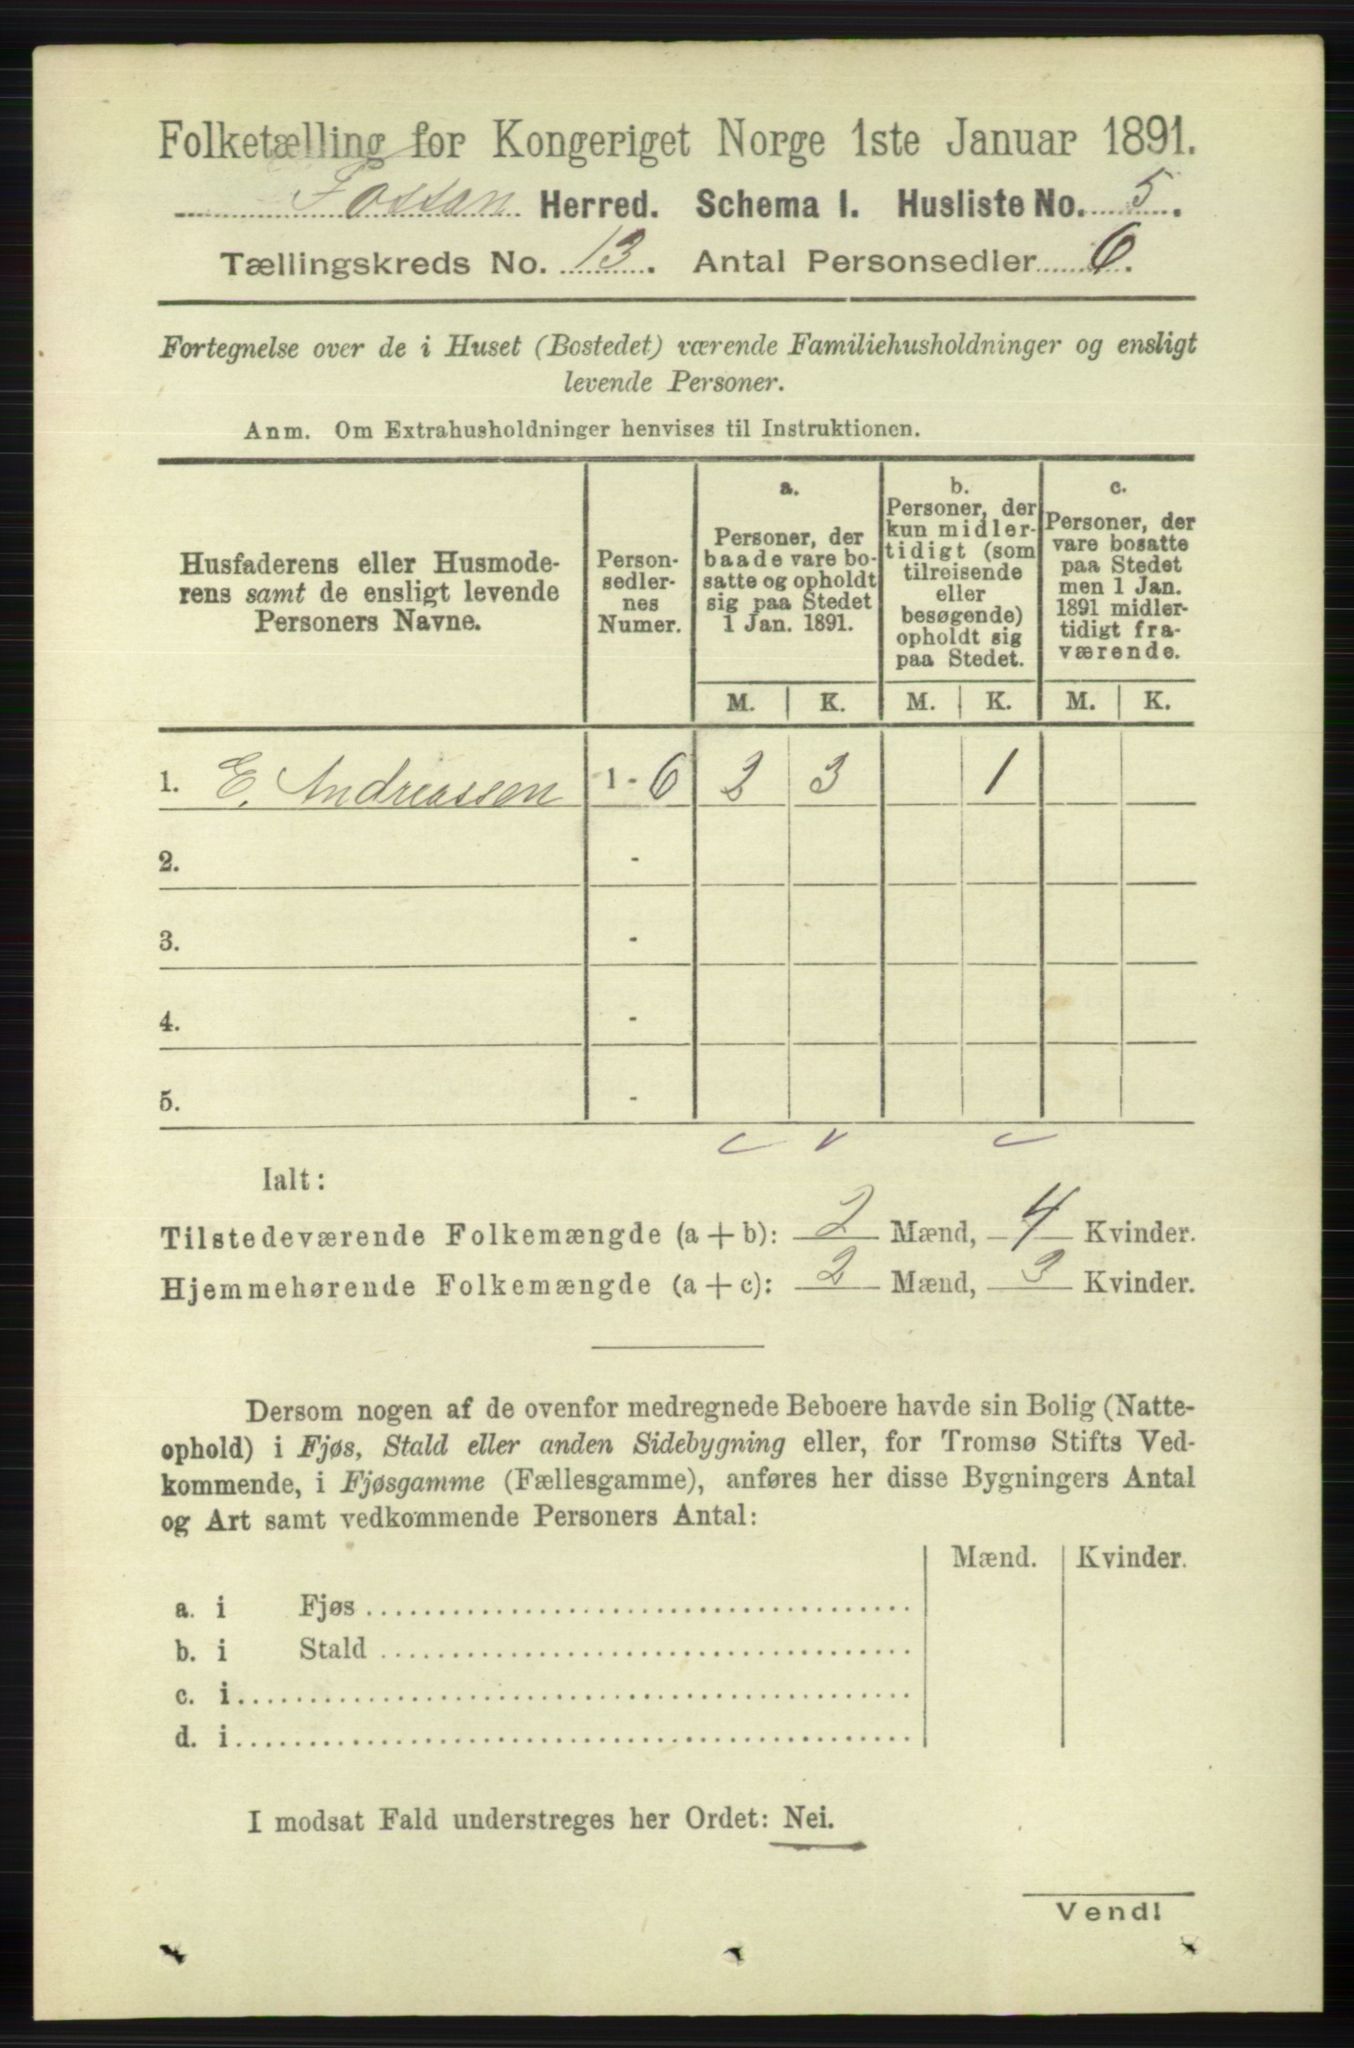 Folketælling for Kongeriget Norge 1ste Januar 1891.
Fossan Herred. Schema I. Husliste No. 5.
Tællingskreds No. 13. Antal Personsedler 6.
Fortegnelse over de i Huset (Bostedet) værende Familiehusholdninger og ensligt
levende Personer.
Anm. Om Extrahusholdninger henvises til Instruktionen.
Husfaderens eller Husmode-
rens samt de ensligt levende
Personers Navne.
Person-
sedler-
nes
Numer.
a.
Personer, der
baade vare bo-
satte og opholdt
sig paa Stedet
1 Jan. 1891.
b.
Personer, der
kun midler-
tidigt (som
tilreisende
eller
besøgende)
opholdt sig
paa Stedet.
c.
Personer, der
vare bosatte
paa Stedet
men 1 Jan.
1891 midler-
tidigt fra-
værende.
M. K. M. K. M. K.
1. E. Andreassen 1 - 6 2 3 1
2. -
3. -
4. -
5. -
Ialt:
Tilstedeværende Folkemængde (a + b): 2 Mænd, 4 Kvinder.
Hjemmehørende Folkemængde (a + c): 2 Mænd, 3 Kvinder.
Dersom nogen af de ovenfor medregnede Beboere havde sin Bolig (Natte-
ophold) i Fjøs, Stald eller anden Sidebygning eller, for Tromsø Stifts Ved-
kommende, i Fjøsgamme (Fællesgamme), anføres her disse Bygningers Antal
og Art samt vedkommende Personers Antal:
Mænd. Kvinder.
a. i Fjøs
b. i Stald
c. i
d. i
I modsat Fald understreges her Ordet: Nei.
Vend!